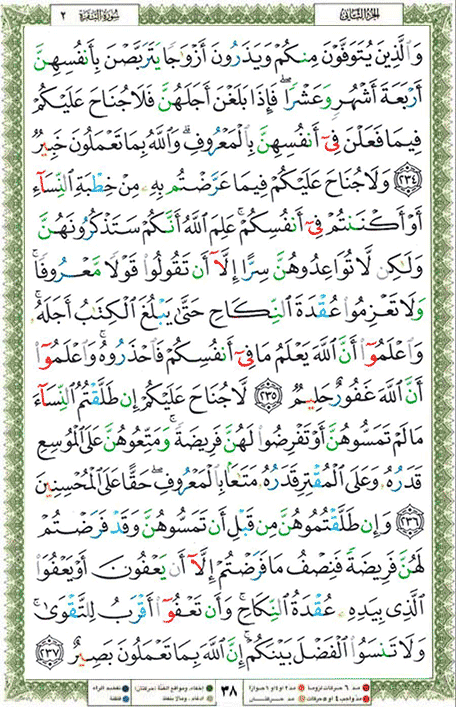 الجزء الثاني
سورة البقرة ٢
وَٱلَّذِينَ يُتَوَفَّوْنَ مِنكُمْ وَيَذَرُونَ أَزْوَٰجًا يَتَرَبَّصْنَ بِأَنفُسِهِنَّ
أَرْبَعَةَ أَشْهُرٍ وَعَشْرًا ۖ فَإِذَا بَلَغْنَ أَجَلَهُنَّ فَلَا جُنَاحَ عَلَيْكُمْ
فِيمَا فَعَلْنَ فِىٓ أَنفُسِهِنَّ بِٱلْمَعْرُوفِ ۗ وَٱللَّهُ بِمَا تَعْمَلُونَ خَبِيرٌ
﴿٢٣٤﴾ وَلَا جُنَاحَ عَلَيْكُمْ فِيمَا عَرَّضْتُم بِهِۦ مِنْ خِطْبَةِ ٱلنِّسَآءِ
أَوْ أَكْنَنتُمْ فِىٓ أَنفُسِكُمْ ۚ عَلِمَ ٱللَّهُ أَنَّكُمْ سَتَذْكُرُونَهُنَّ
وَلَٰكِن لَّا تُوَاعِدُوهُنَّ سِرًّا إِلَّآ أَن تَقُولُوا۟ قَوْلًا مَّعْرُوفًا ۚ
وَلَا تَعْزِمُوا۟ عُقْدَةَ ٱلنِّكَاحِ حَتَّىٰ يَبْلُغَ ٱلْكِتَٰبُ أَجَلَهُۥ ۚ
وَٱعْلَمُوٓا۟ أَنَّ ٱللَّهَ يَعْلَمُ مَا فِىٓ أَنفُسِكُمْ فَٱحْذَرُوهُ ۚ وَٱعْلَمُوٓا۟
أَنَّ ٱللَّهَ غَفُورٌ حَلِيمٌ ﴿٢٣٥﴾ لَّا جُنَاحَ عَلَيْكُمْ إِن طَلَّقْتُمُ ٱلنِّسَآءَ
مَا لَمْ تَمَسُّوهُنَّ أَوْ تَفْرِضُوا۟ لَهُنَّ فَرِيضَةً ۚ وَمَتِّعُوهُنَّ عَلَى ٱلْمُوسِعِ
قَدَرُهُۥ وَعَلَى ٱلْمُقْتِرِ قَدَرُهُۥ مَتَٰعًۢا بِٱلْمَعْرُوفِ ۖ حَقًّا عَلَى ٱلْمُحْسِنِينَ
﴿٢٣٦﴾ وَإِن طَلَّقْتُمُوهُنَّ مِن قَبْلِ أَن تَمَسُّوهُنَّ وَقَدْ فَرَضْتُمْ
لَهُنَّ فَرِيضَةً فَنِصْفُ مَا فَرَضْتُمْ إِلَّآ أَن يَعْفُونَ أَوْ يَعْفُوَا۟
ٱلَّذِى بِيَدِهِۦ عُقْدَةُ ٱلنِّكَاحِ ۚ وَأَن تَعْفُوٓا۟ أَقْرَبُ لِلتَّقْوَىٰ ۚ
وَلَا تَنسَوُا۟ ٱلْفَضْلَ بَيْنَكُمْ ۚ إِنَّ ٱللَّهَ بِمَا تَعْمَلُونَ بَصِيرٌ ﴿٢٣٧﴾
٣٨